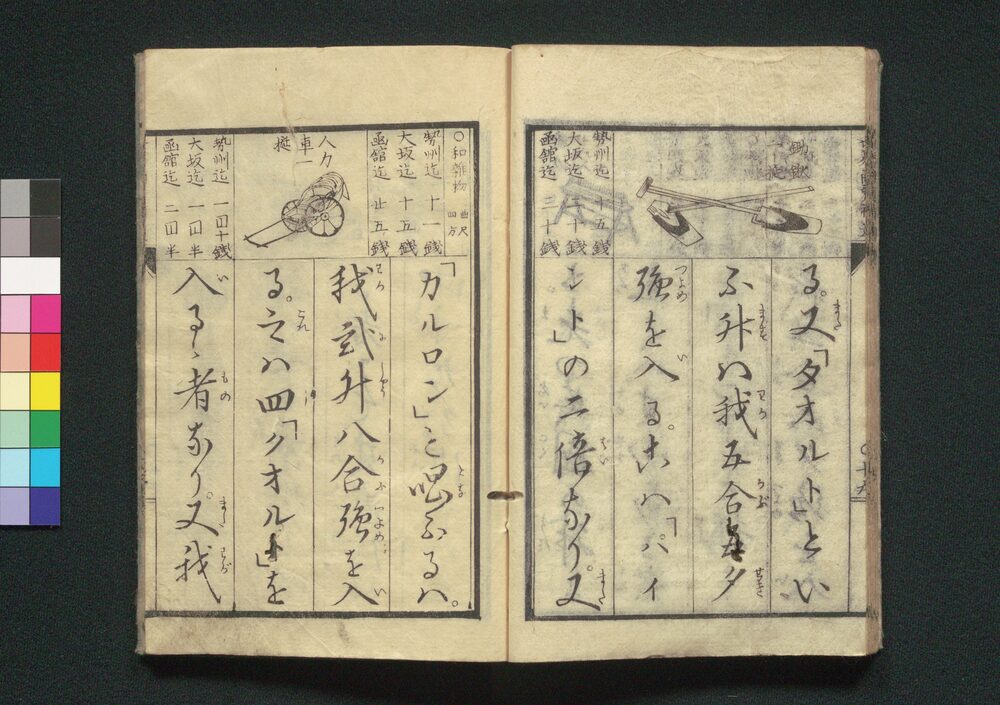 鋤鍬
一挺
勢州迄 十五銭
大坂迄 二十銭
函舘迄 三十銭
る。又「タオルト」とい
ふ升ハ我五合余夕
強を入る。古ハ「パイ
ント」の二倍なり。又
〇和雑物 曲尺四方
勢州迄 十一銭
大坂迄 十五銭
函舘迄 廿五銭
人力
車一
挺
勢州迄 一円十銭
大坂迄 一円半
函舘迄 二円半
「カルロン」と唱ふるハ。
我弐升八合強を入
る。之ハ四「クオルト」を
入るゝ者なり。又我